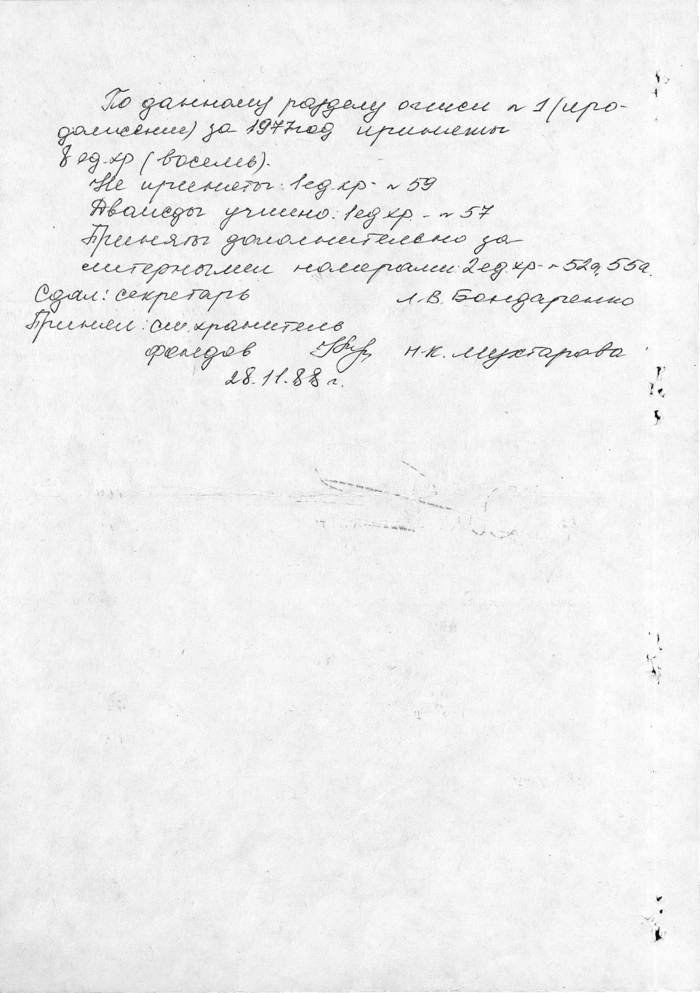 По данному разделу описи № 1 (про-
должение) за 1977 год приняты
8 ед.хр (восемь).
Не приняты: 1 ед.хр. № 59
Дважды учтено: 1 ед хр. - № 57
Приняты дополнительно за
литерными номерами: 2 ед.хр - № 52а, 55а.
Сдал: секретарь Л.В. Бондаренко
Принял: ст. хранитель
фондов Н.К. Мухтарова
28.11.88 г.